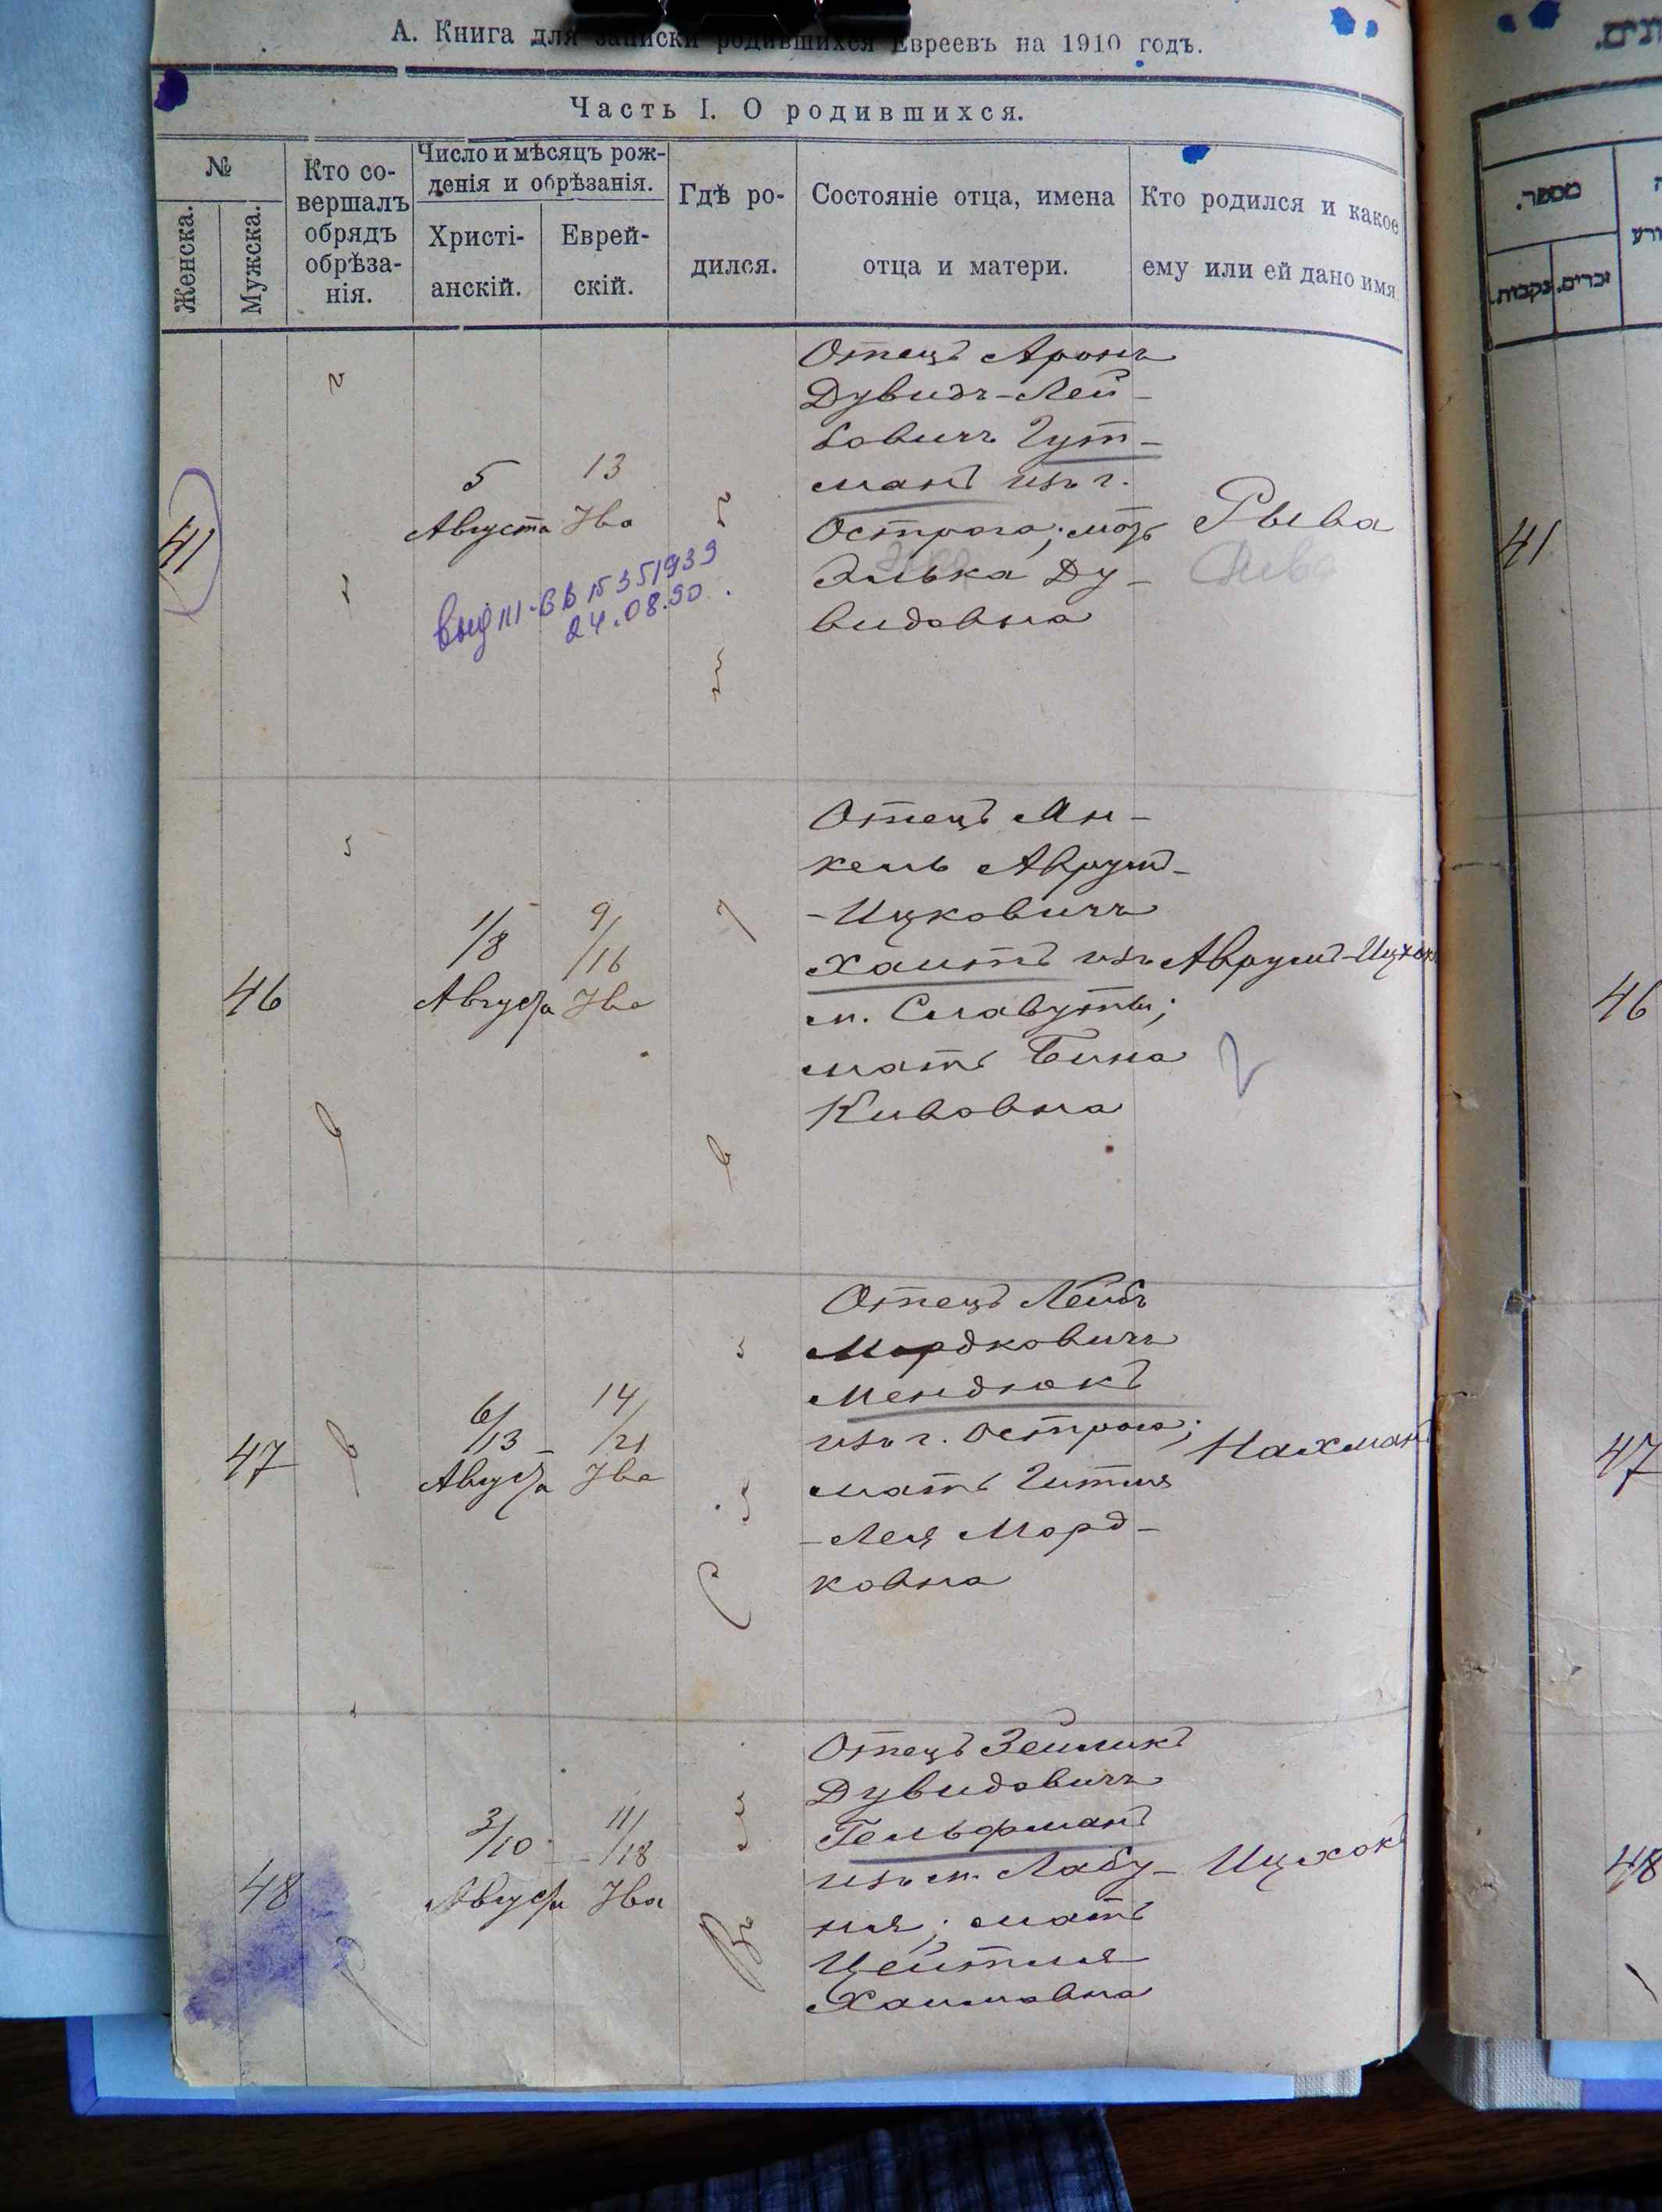 А. Книга для записки родившихся Евреевъ на 1910 годъ.
Часть I. О родившихся.
№
Женска.
Мужска.
Кто со-
вершалъ
обрядъ
обрѣза-
нія.
Число и мѣсяцъ рож-
денія и обрѣзанія.
Христі-
анскій.
Еврей-
скій.
Гдѣ ро-
дился.
Состояніе отца, имена
отца и матери.
Кто родился и какое
ему или ей дано имя
41
5
Августа
13
Ава
24.08.90.
Отецъ Аронъ
Дувидъ-Лей-
бовичъ Гут-
манъ изъ г.
Острога; мать
Элька Ду-
видовна
Рыва
46
1/8
Августа
9/16
Ава
Отецъ Ян-
кель Аврумъ-
-Ицковичъ
Хаитъ изъ
м. Славуты;
мать Бина
Кивовна
Аврумъ-Ицхок
47
6/13
Августа
14/21
Ава
Отецъ Лейбъ
Мордковичъ
Мендюкъ
изъ г. Острога;
мать Гитля
-Лея Морд-
ковна
Нахманъ
48
3/10
Августа
11/18
Ава
Отецъ Зейликъ
Дувидовичъ
Гельфманъ
изъ м. Лабу-
ня; мать
Цейтля
Хаимовна
Ицхокъ
מספר.
זכרים.
נקבות.
41
46
47
48